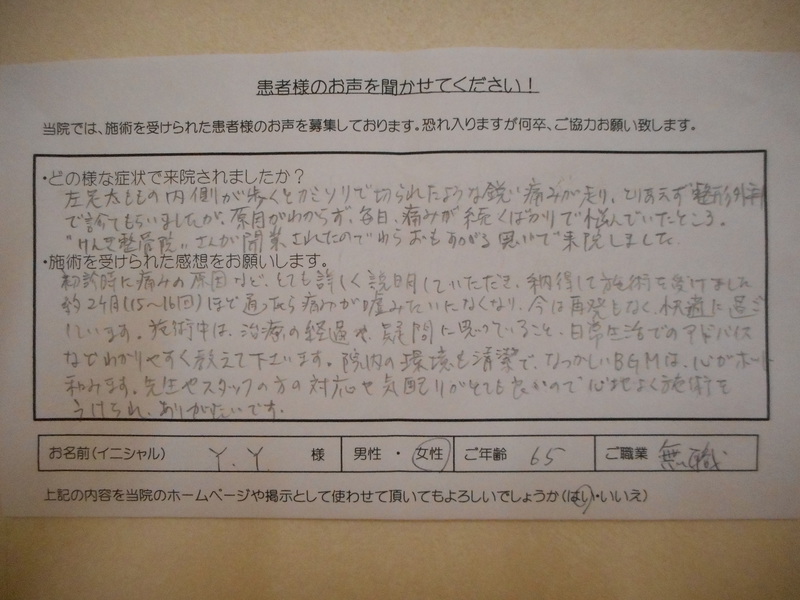 患者様のお声を聞かせてください!
当院では、施術を受けられた患者様のお声を募集しております。恐れ入りますが何卒、ご協力お願い致します。
・どの様な症状で来院されましたか?
左足太ももの内側が歩くとカミソリで切られたような鋭い痛みが走り、とりあえず整形外科
で診てもらいましたが、原因がわからず、毎日、痛みが続くばかりで悩んでいたところ。
"けんせ整骨院"さんが開業されたのでわらおもすがる思いで来院しました
・施術を受けられた感想をお願いします。
初診時に痛みの原因など、とても詳しく説明していただき、納得して施術を受けました
約2ヶ月(15～16回)ほど通ったら痛みが嘘みたいになくなり、今は再発もなく、快適に過ご
しています。施術中は、治療の経過や、疑問に思っていること、日常生活でのアドバイス
などわかりやすく教えて下さいます。院内の環境も清潔で、なつかしいBGMは、心がホット
和みます。先生やスタッフの方の対応や気配りがとても良いので心地よく施術を
うけられ、ありがたいです。
お名前(イニシャル) Y.Y 様 男性・女性 ご年齢 65 ご職業 無職
上記の内容を当院のホームページや掲示として使わせて頂いてもよろしいでしょうか(はい・いいえ)